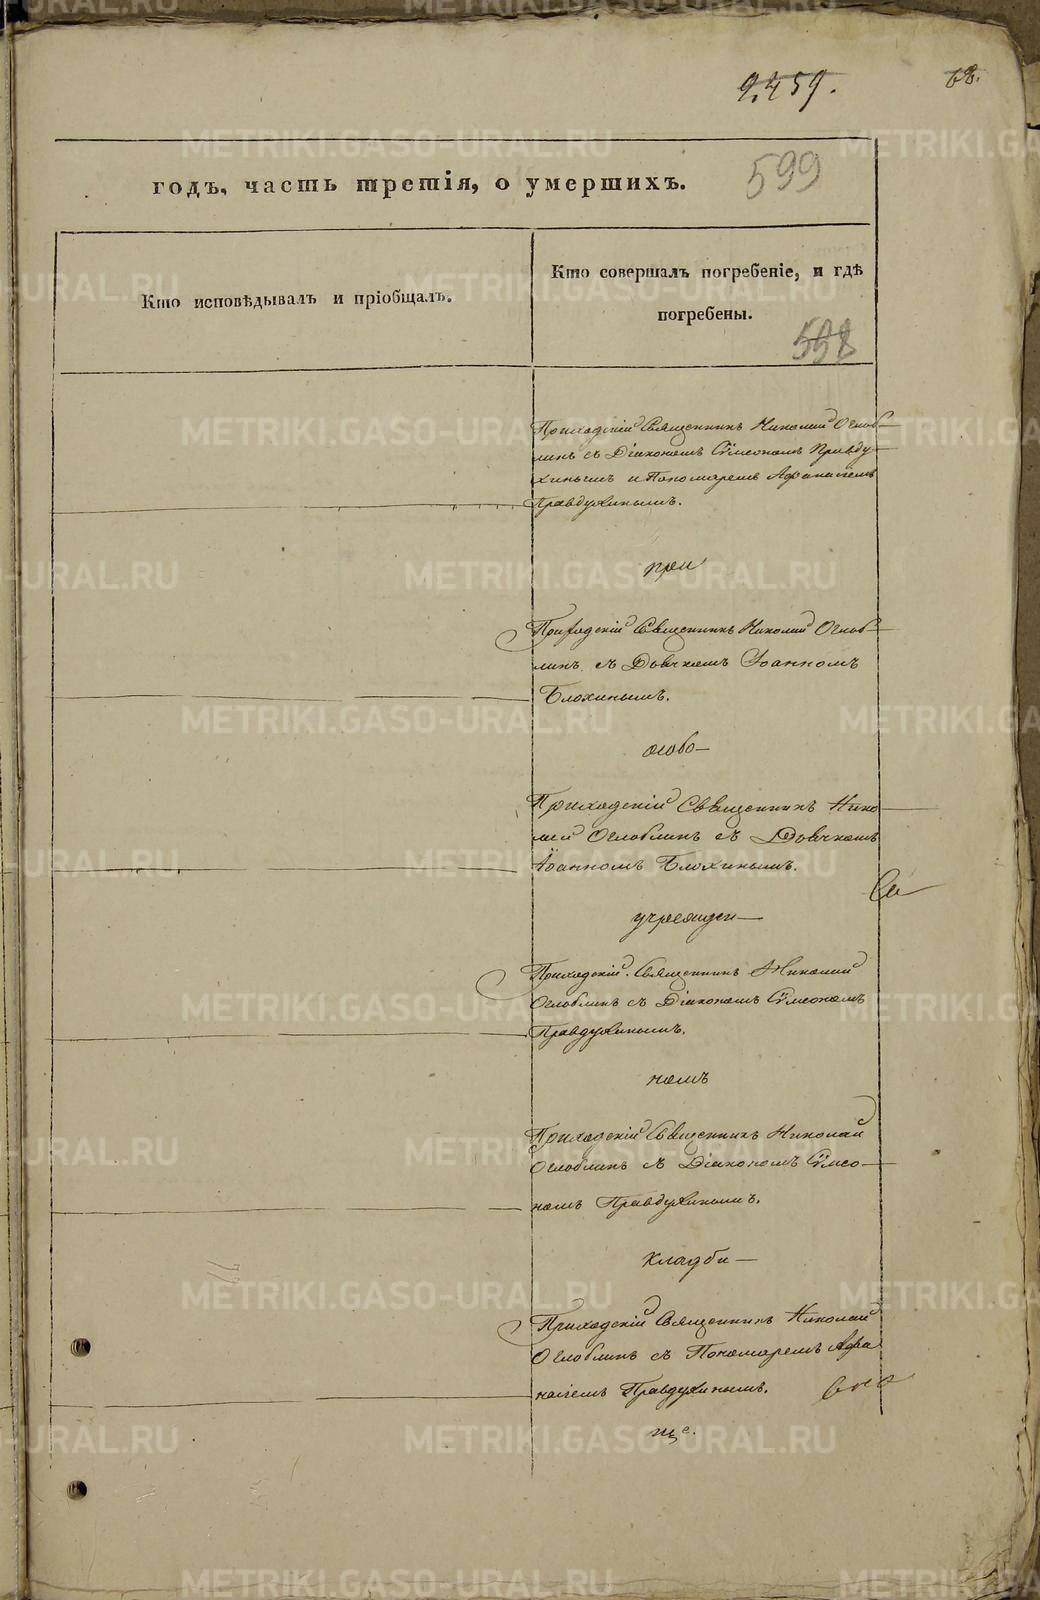 9,459.
68.
годъ, часть третія, о умершихъ.
599
Кто исповѣдывалъ и пріобщалъ.
Кто совершалъ погребеніе, и гдѣ
погребены.
598
Приходскій Священникъ Николай Оглоб-
линъ съ Діакономъ Сѵмеономъ Правду-
хинымъ и Пономаремъ Афанасіемъ
Правдухинымъ.
при
Приходскій Священникъ Николай Оглоб-
линъ съ Дьячкомъ Іоанномъ
Блохинымъ.
особо—
Приходскій Священникъ Нико-
лай Оглоблинъ съ Дьячкомъ
Іоанномъ Блохинымъ.
учрежден—
Приходскій Священникъ Николай
Оглоблинъ съ Діакономъ Сѵмеономъ
Правдухинымъ.
номъ
Приходскій Священникъ Николай
Оглоблинъ съ Діакономъ Сѵмео-
номъ Правдухинымъ.
кладби—
Приходскій Священникъ Николай
Оглоблинъ съ Пономаремъ Афа
насіемъ Правдухинымъ.
щѣ.
METRIKI.GASO-URAL.RU